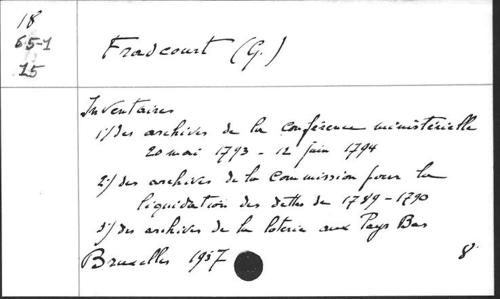 18
65-1
15
Fradcourt (G.)
Inventaires
1°/ des archives de la conférence ministérielle
20 mai 1793 - 12 juin 1794
2°/ des archives de la Commission pour la
liquidation des dettes de 1789-1790
3°/ des archives de la loterie aux Pays Bas
Bruxelles 1957 8°